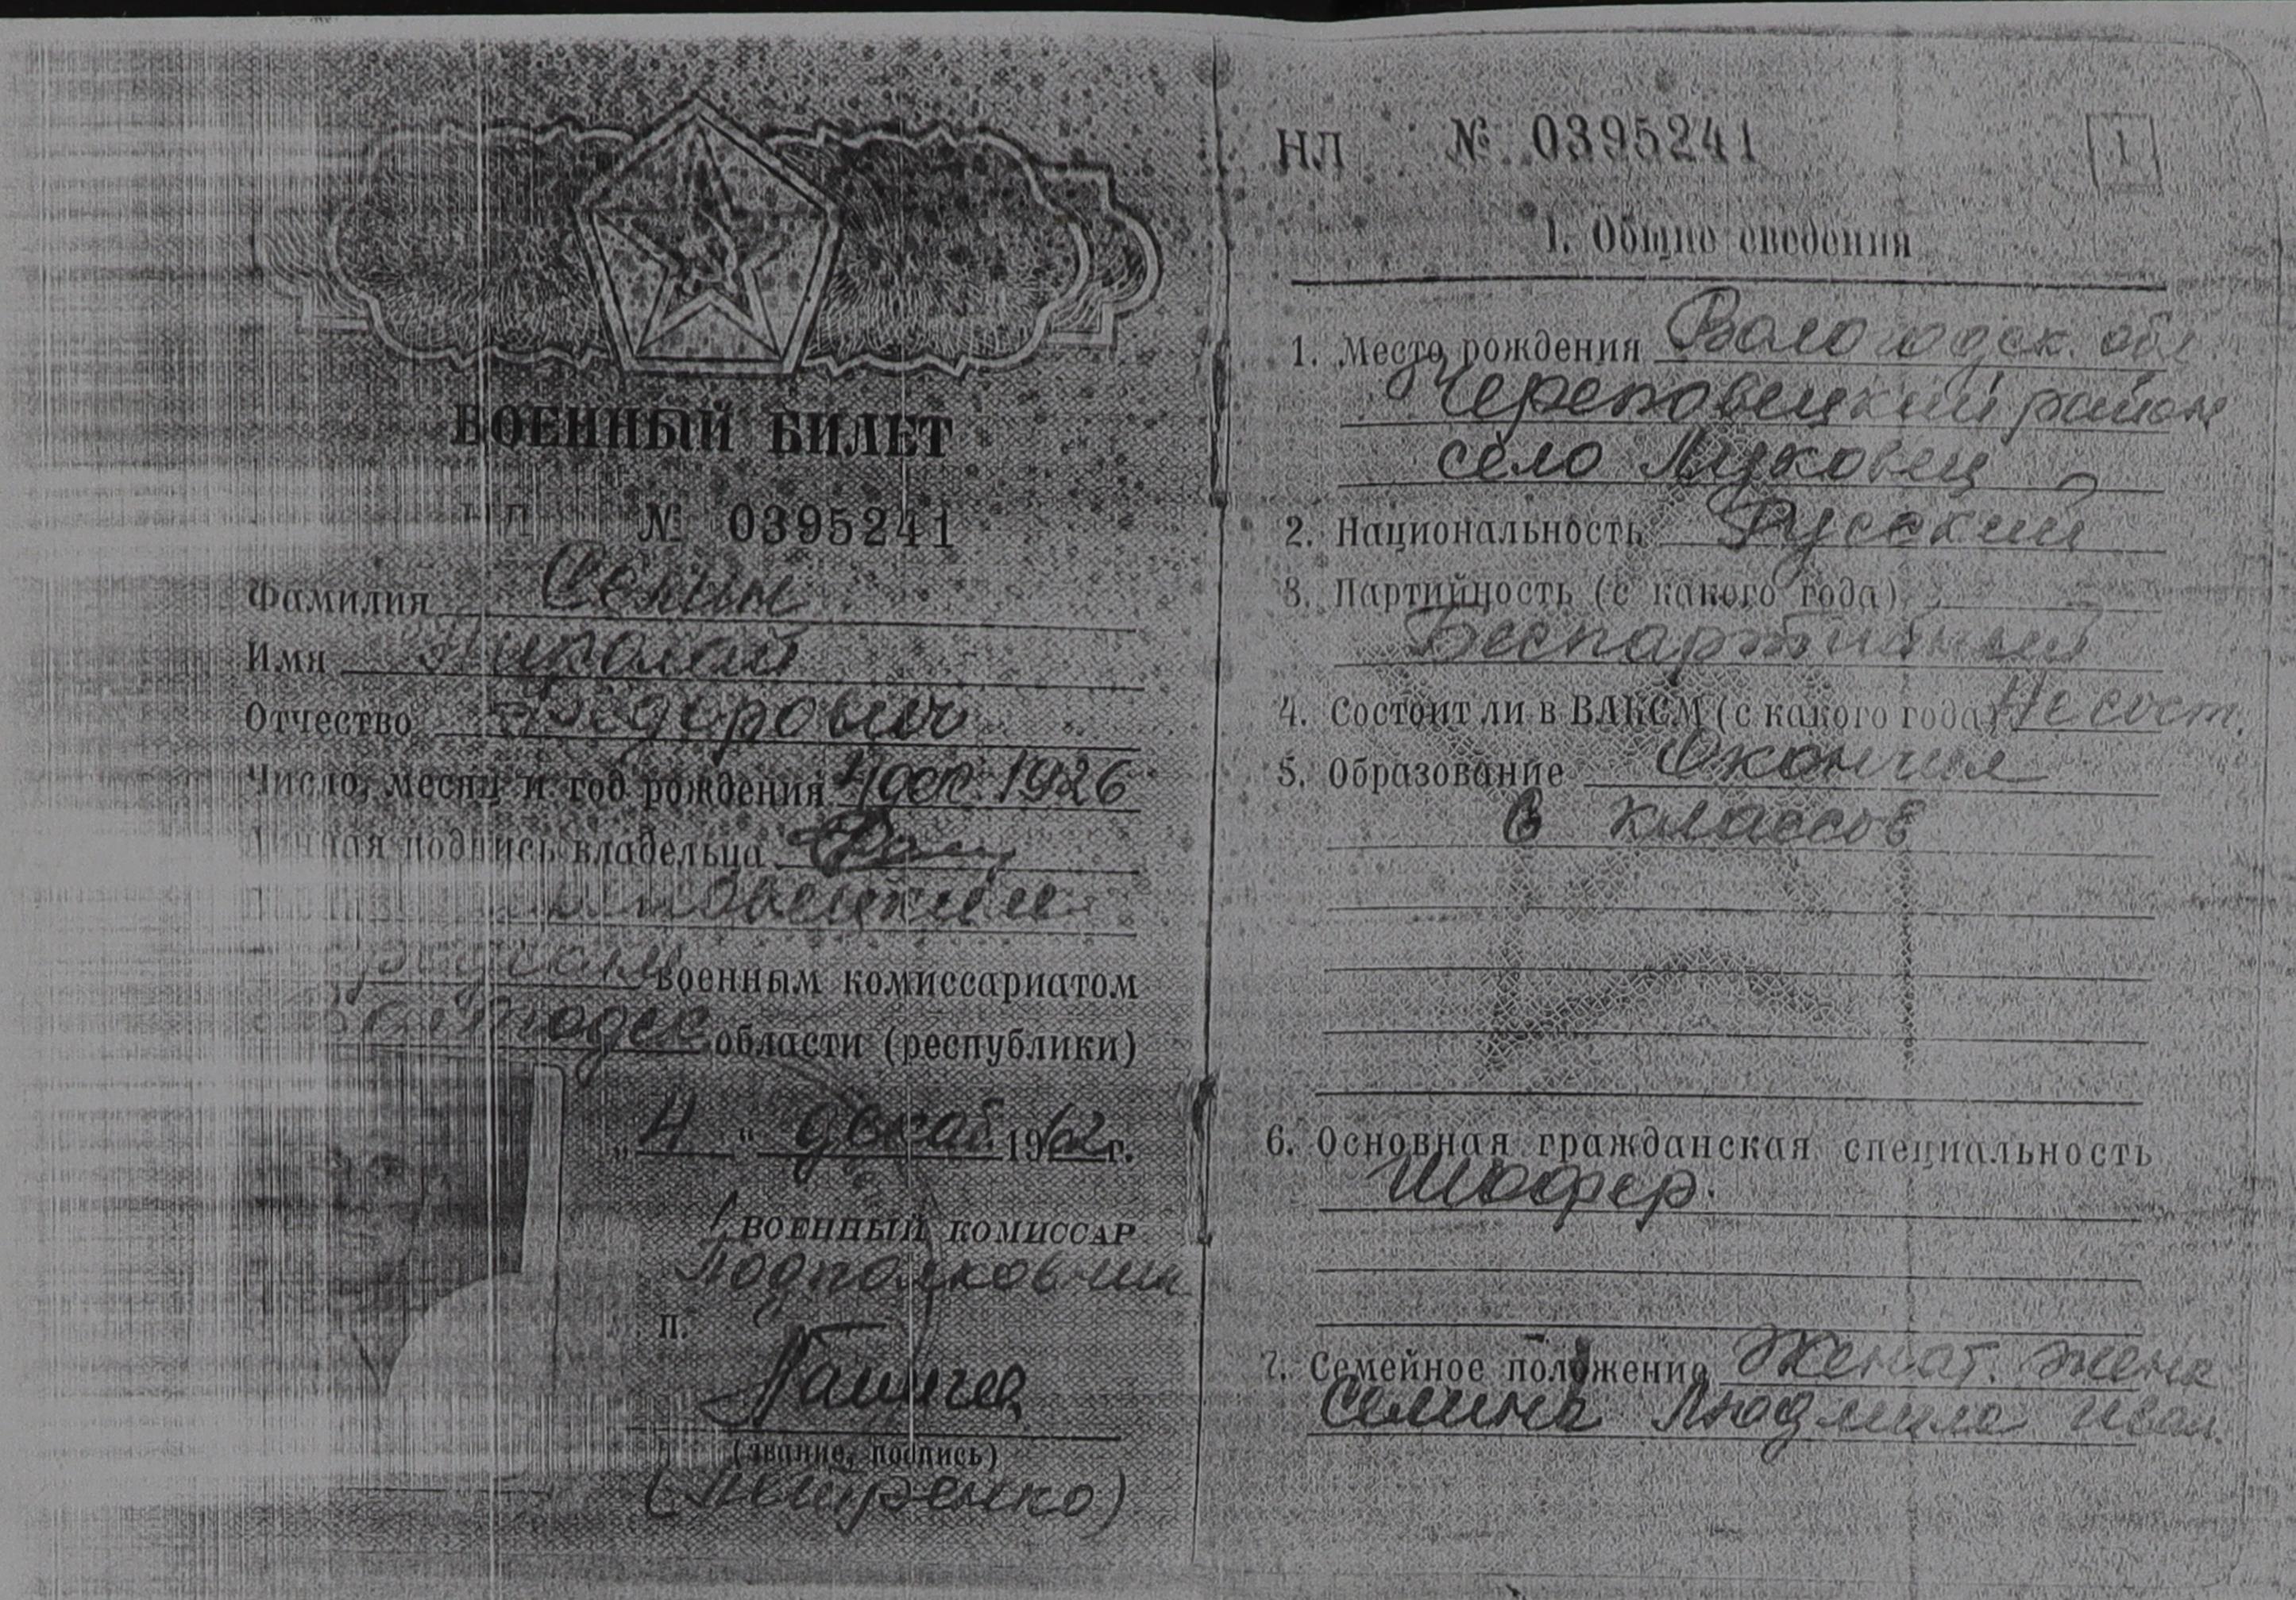 ВОЕННЫЙ БИЛЕТ
НЛ № 0395241
Фамилия Селин
Имя Николай
Отчество Федорович
Число, месяц и год рождения 4 дек. 1926
Личная подпись владельца
военным комиссариатом
области (республики)
„4“ декаб. 1962 г.
ВОЕННЫЙ КОМИССАР
Подполковник
м. п.
(звание, подпись)
НЛ № 0395241
1
1. Общие сведения
1. Место рождения Вологодск. обл
Череповецкий район
село Луковец
2. Национальность Русский
3. Партийность (с какого года)
Беспартийный
4. Состоит ли в ВЛКСМ (с какого года) Не сост.
5. Образование Окончил
6 классов
6. Основная гражданская специальность
Шофер.
7. Семейное положение Женат. Жена
Селина Людмила Иван.